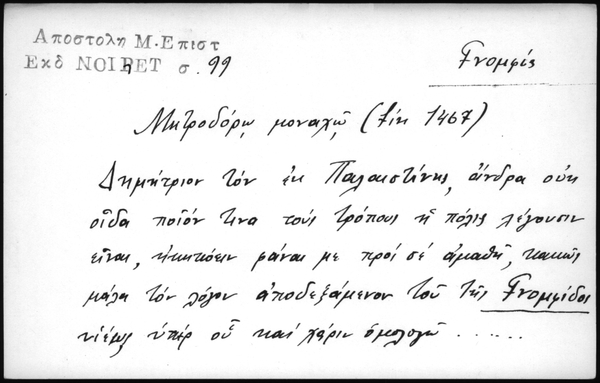 Αποστολη Μ. Επιστ
Εκδ NOIRET σ. 99
Γνομφίς
Μητροδόρῳ μοναχῷ (fin 1467)
Δημήτριον τὸν ἐκ Παλαιστίνης, ἄνδρα οὐκ
οἶδα ποῖόν τινα τοὺς τρόπους ἢ πόλις λέγουσιν
εἶναι, φάναι με πρὸς σέ ἀμαθῆ, κακῶς
μάλα τὸν λόγον ἀποδεξάμενον τοῦ τῆς Γνομφίδος
υἱέως ὑπὲρ οὗ καὶ χάριν ὁμολογῶ ......